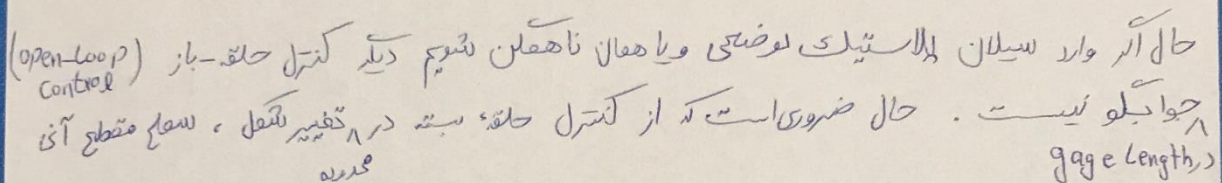 حال اگر وارد سیلان پلاستیک موضعی و یا همان ناهمگن شویم دیگر کنترل حلقه-باز (open-loop control)
جوابگو نیست. حال ضروری است که از کنترل حلقهٔ بسته در محدوده تغییر شکل، سطح مقطع آنی
در gage length